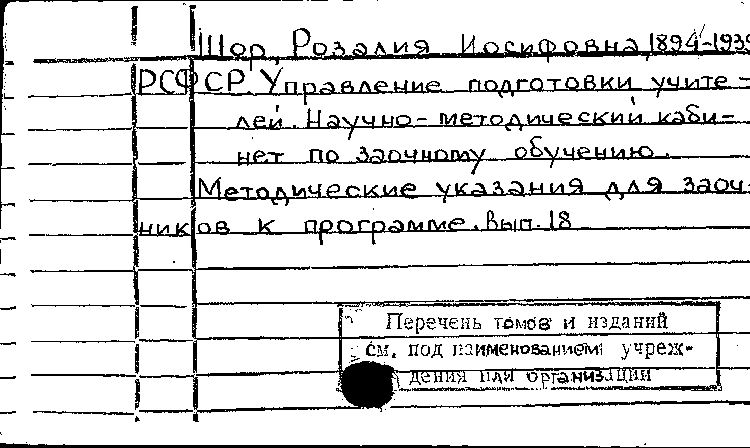 Шор, Розалия Иосифовна, 1894-1939
РСФСР. Управление подготовки учите-
лей. Научно-методический каби-
нет по заочному обучению.
Методические указания для заоч-
ников к программе. Вып. 18
Перечень томов и изданий
см. под наименованием учреж-
дения или организации